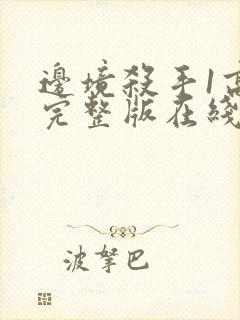 邊境殺手1高
完整版在綫
波拏巴